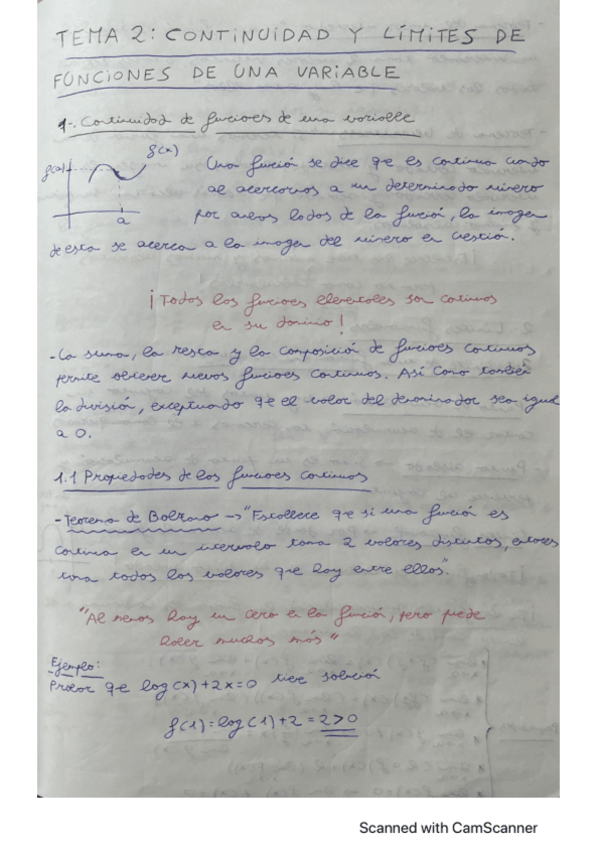 TEMA 2: CONTINUIDAD Y LÍMITES DE
FUNCIONES DE UNA VARIABLE
1-. Continuidad de funciones de una variable
f(a)
f(x)
a
Una función se dice que es continua cuando
al acercarnos a un determinado número
por ambos lados de la función, la imagen
de esta se acerca a la imagen del número en cuestión.
¡Todas las funciones elementales son continuas
en su dominio!
-La suma, la resta y la composición de funciones continuas
permite obtener nuevas funciones continuas. Así como también
la división, exceptuando que el valor del denominador sea igual
a 0.
1.1 Propiedades de las funciones continuas
-Teorema de Bolzano → "Establece que si una función es
continua en un intervalo toma 2 valores distintos, entonces
toma todos los valores que hay entre ellos".
"Al menos hay un cero en la función, pero puede
haber muchos más"
Ejemplo:
Probar que log(x)+2x=0 tiene solución
f(1)=log(1)+2=2>0
Scanned with CamScanner